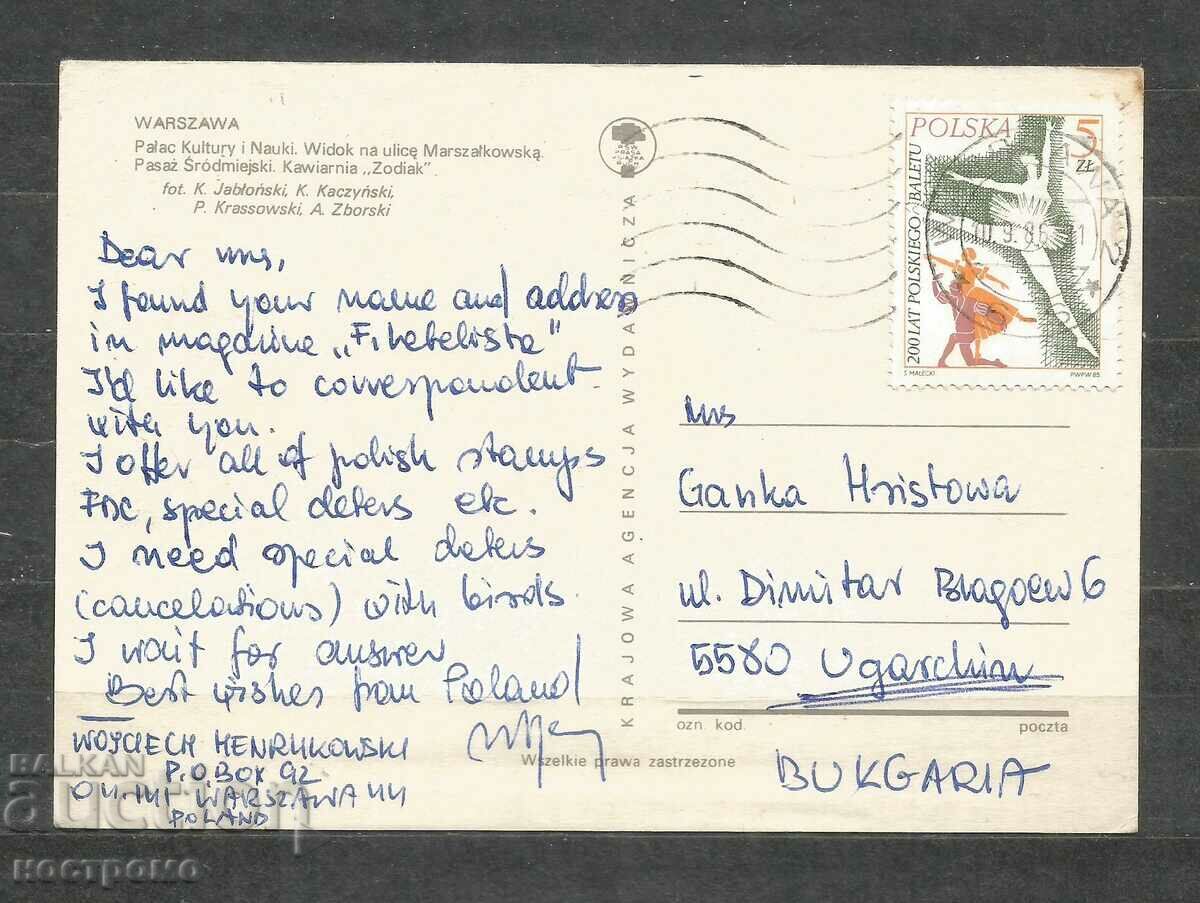 WARSZAWA
Pałac Kultury i Nauki. Widok na ulicę Marszałkowską.
Pasaż Śródmiejski. Kawiarnia „Zodiak”.
fot. K. Jabłoński, K. Kaczyński,
P. Krassowski, A. Zborski
Dear mrs,
I found your name and address
in magazine „Filatelista”
I'd like to correspondent
with you.
I offer all of polish stamps
FDC, special daters etc.
I need special daters
(cancelations) with birds.
I wait for answer
Best wishes from Poland
WOJCIECH HENRYKOWSKI
P.O.BOX 92
WARSZAWA 44
POLAND
KRAJOWA AGENCJA WYDAWNICZA
POLSKA 5 ZŁ
200 LAT POLSKIEGO BALETU
S. MAŁECKI PWPW 85
mrs
Ganka Hristowa
ul. Dimitar Blagoew 6
5580 Ugarchin
ozn. kod. poczta
Wszelkie prawa zastrzeżone
BUKGARIA
BALKAN
auction
костромо